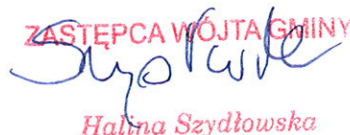 ZASTĘPCA WÓJTA GMINY
Halina Szydłowska